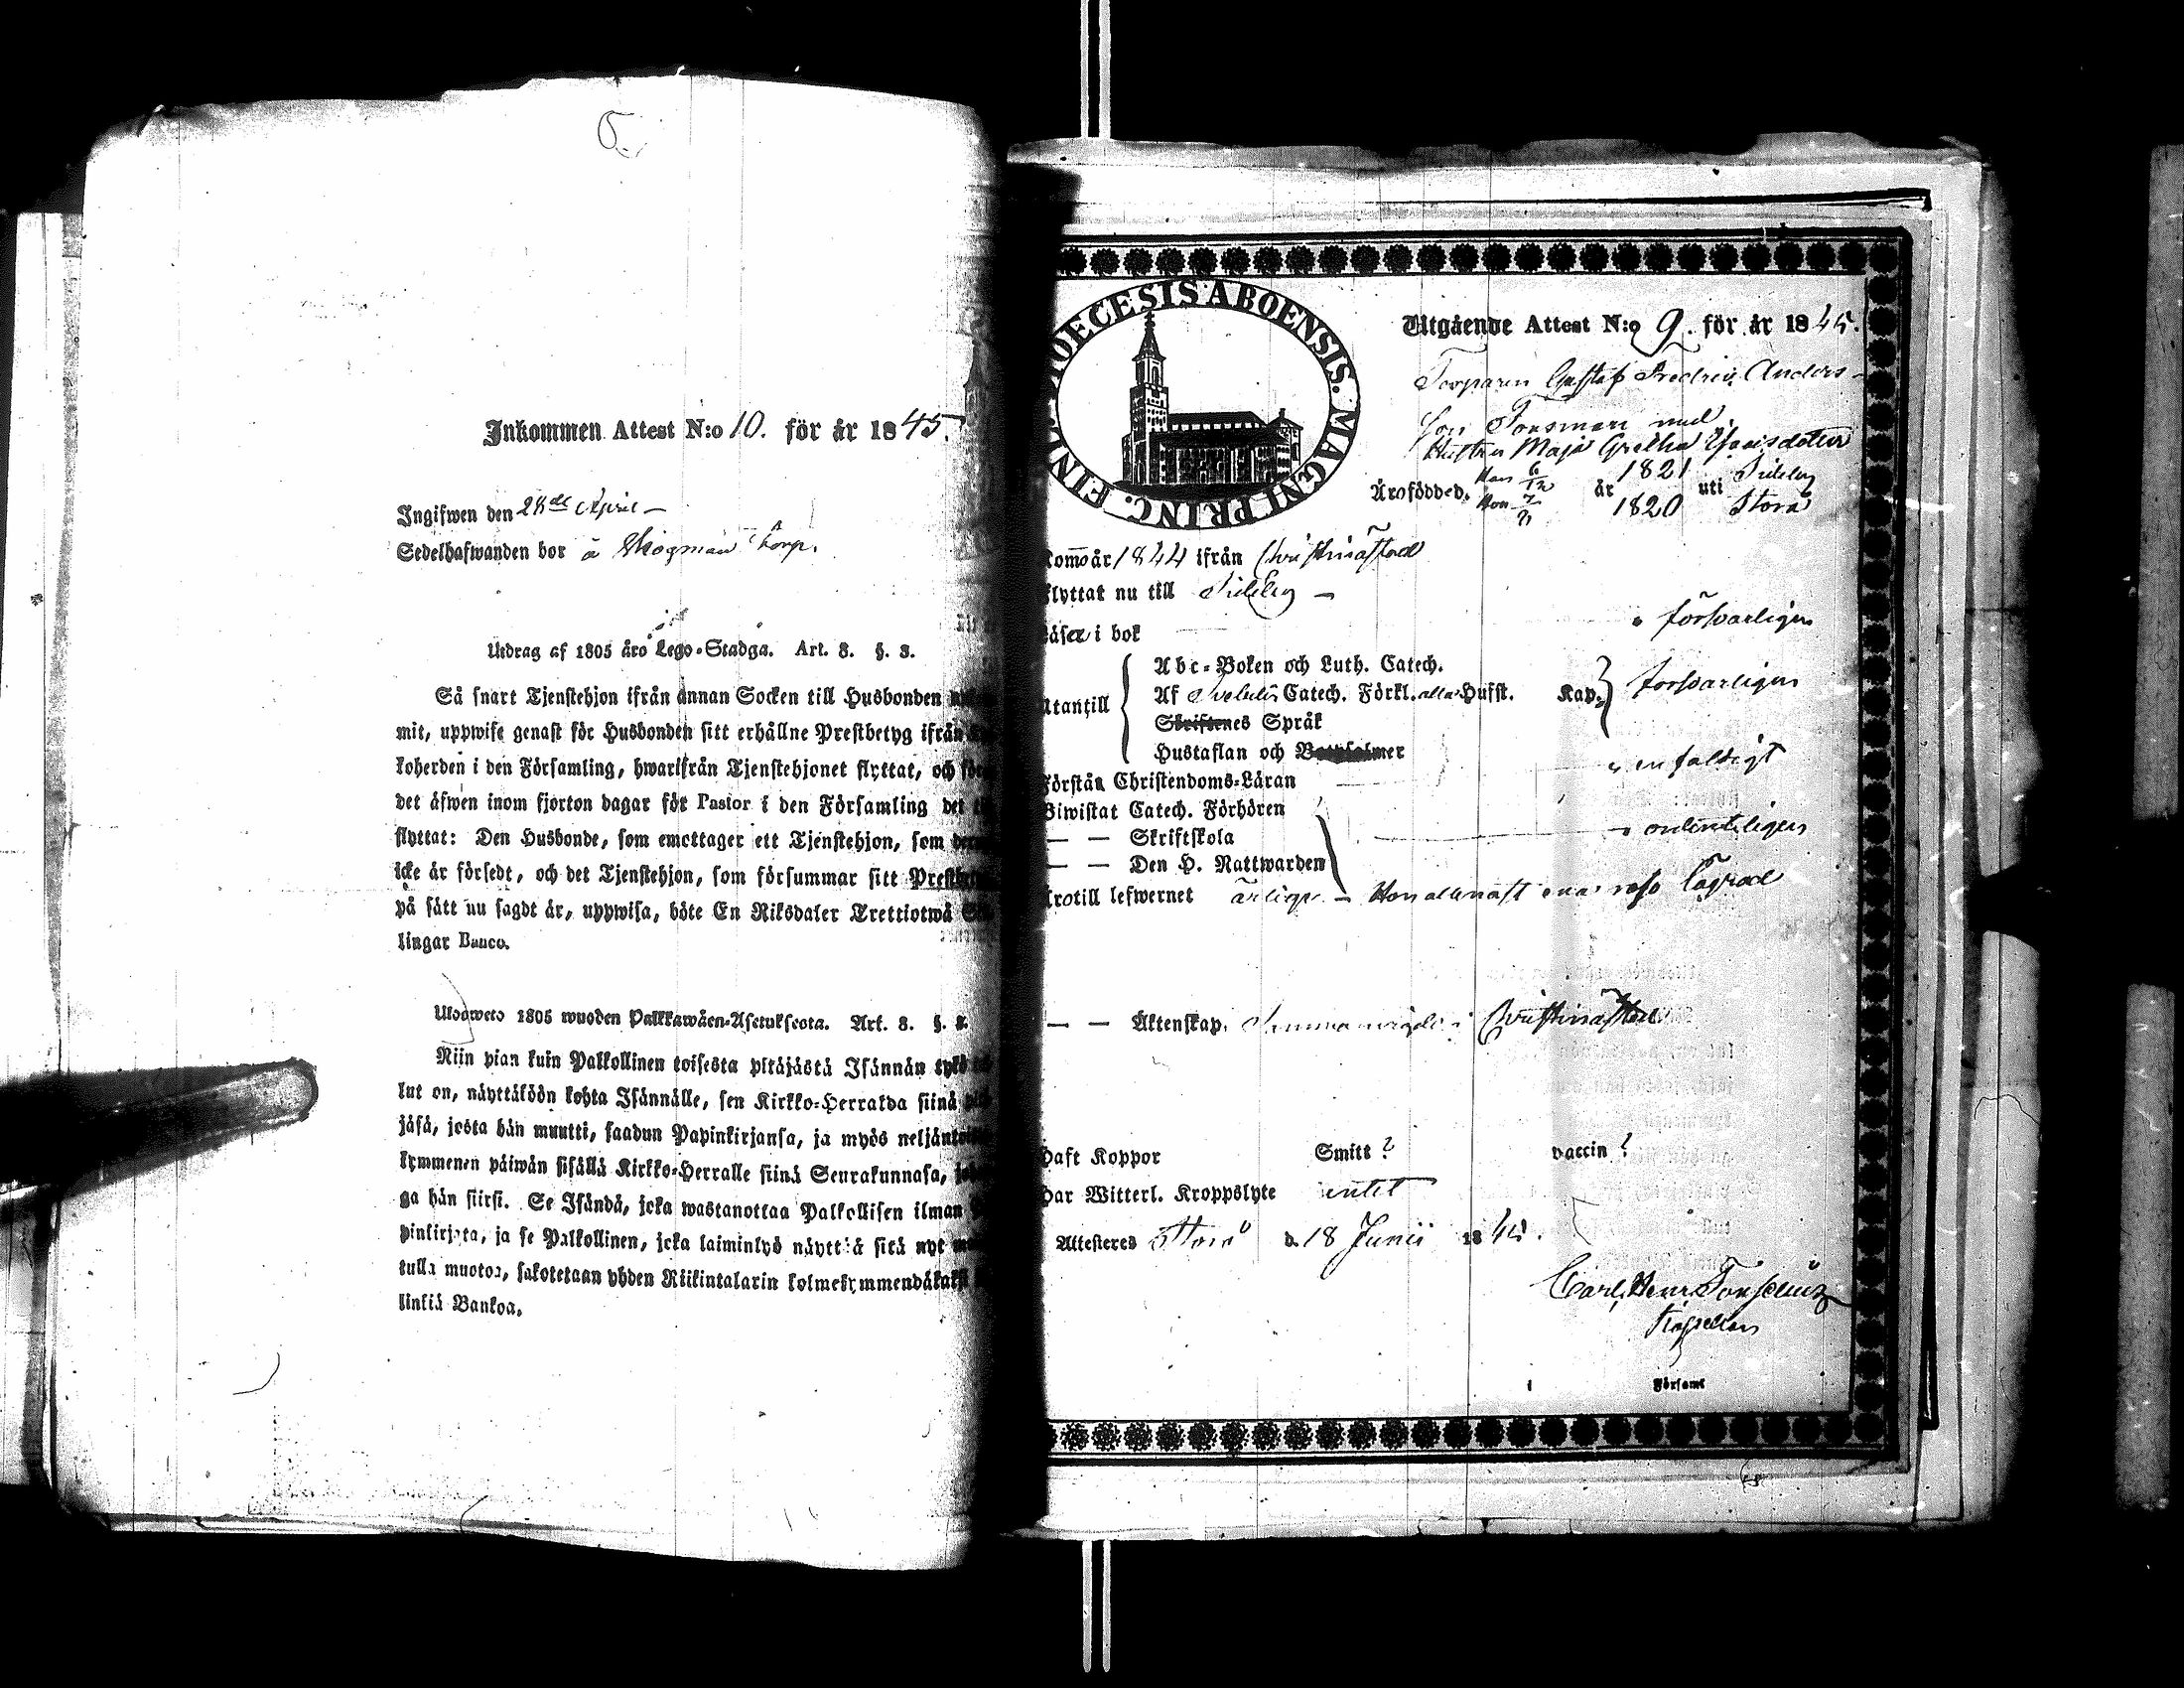 Inkommen Attest N:o 10. för år 1845.
Ingifwen den 28de April –
Sedelhafwanden bor å Skogman torp.
Utdrag af 1805 års Lego-Stadga. Art. 8. §. 3.
Så snart Tjenstehjon ifrån annan Socken till Husbonden
mit, uppwise genast för Husbonden sitt erhållne Prestbetyg ifrån
koherden i den Församling, hwarifrån Tjenstehjonet flyttat, och
det äfwen inom fjorton dagar för Pastor i den Församling det
flyttat: Den Husbonde, som emottager ett Tjenstehjon, som
icke är försedt, och det Tjenstehjon, som försummar sitt
på sätt nu sagdt är, uppwisa, böte En Riksdaler Trettiotwå
lingar Banco.
Ulosweto 1805 wuoden Palkkawäen-Asetuksesta. Art. 8. §.
Niin pian kuin Palkollinen toisesta pitäjästä Isännän tykö
lut on, näyttäköön kohta Isännälle, sen Kirkko-Herralda siinä
jäsä, josta hän muutti, saadun Papinkirjansa, ja myös
kymmenen päiwän sisällä Kirkko-Herralle siinä Seurakunnasa,
ga hän siirsi. Se Isändä, joka wastanottaa Palkollisen ilman
pinkirjata, ja se Palkollinen, joka laiminlyö näyttää sitä nyt
tulla muotoa, sakotetaan yhden Riikintalarin kolmekymmendäkaksi
linkiä Bankoa.
DIOECESIS ABOENSIS. MAGNI PRINC. FINL.
Utgående Attest N:o 9. för år 1845.
Torparen Gustaf Fredric Anders-
son Forsman med
Hustru Maja Gretha
Äro födde d. Han 6/12 år 1821 uti Sideby
Hon 1820 Storå
Kommo år 1844 ifrån Christinästad
Flyttat nu till Sideby –
Läser i bok försvarligen
Utantill Abc-Boken och Luth. Catech.
Af Svebelii Catech. Förkl. alla Hufst. Kap. försvarligen
Skriftenes Språk
Hustaflan och
Förstår Christendoms-Läran enfaldigt
Biwistat Catech. Förhören
— — Skriftskola ordenteligen
— — Den H. Nattwarden
Äro till lefwernet ärlige – Hon allenast
— — Äktenskap. Sammanvigde i Christinästad
Haft Koppor Smitt? vaccin?
Har Witterl. Kroppslyte intet
Attesteres Storå d. 18 Junii 1845.
Carl Henr
Kapellan
i Församl